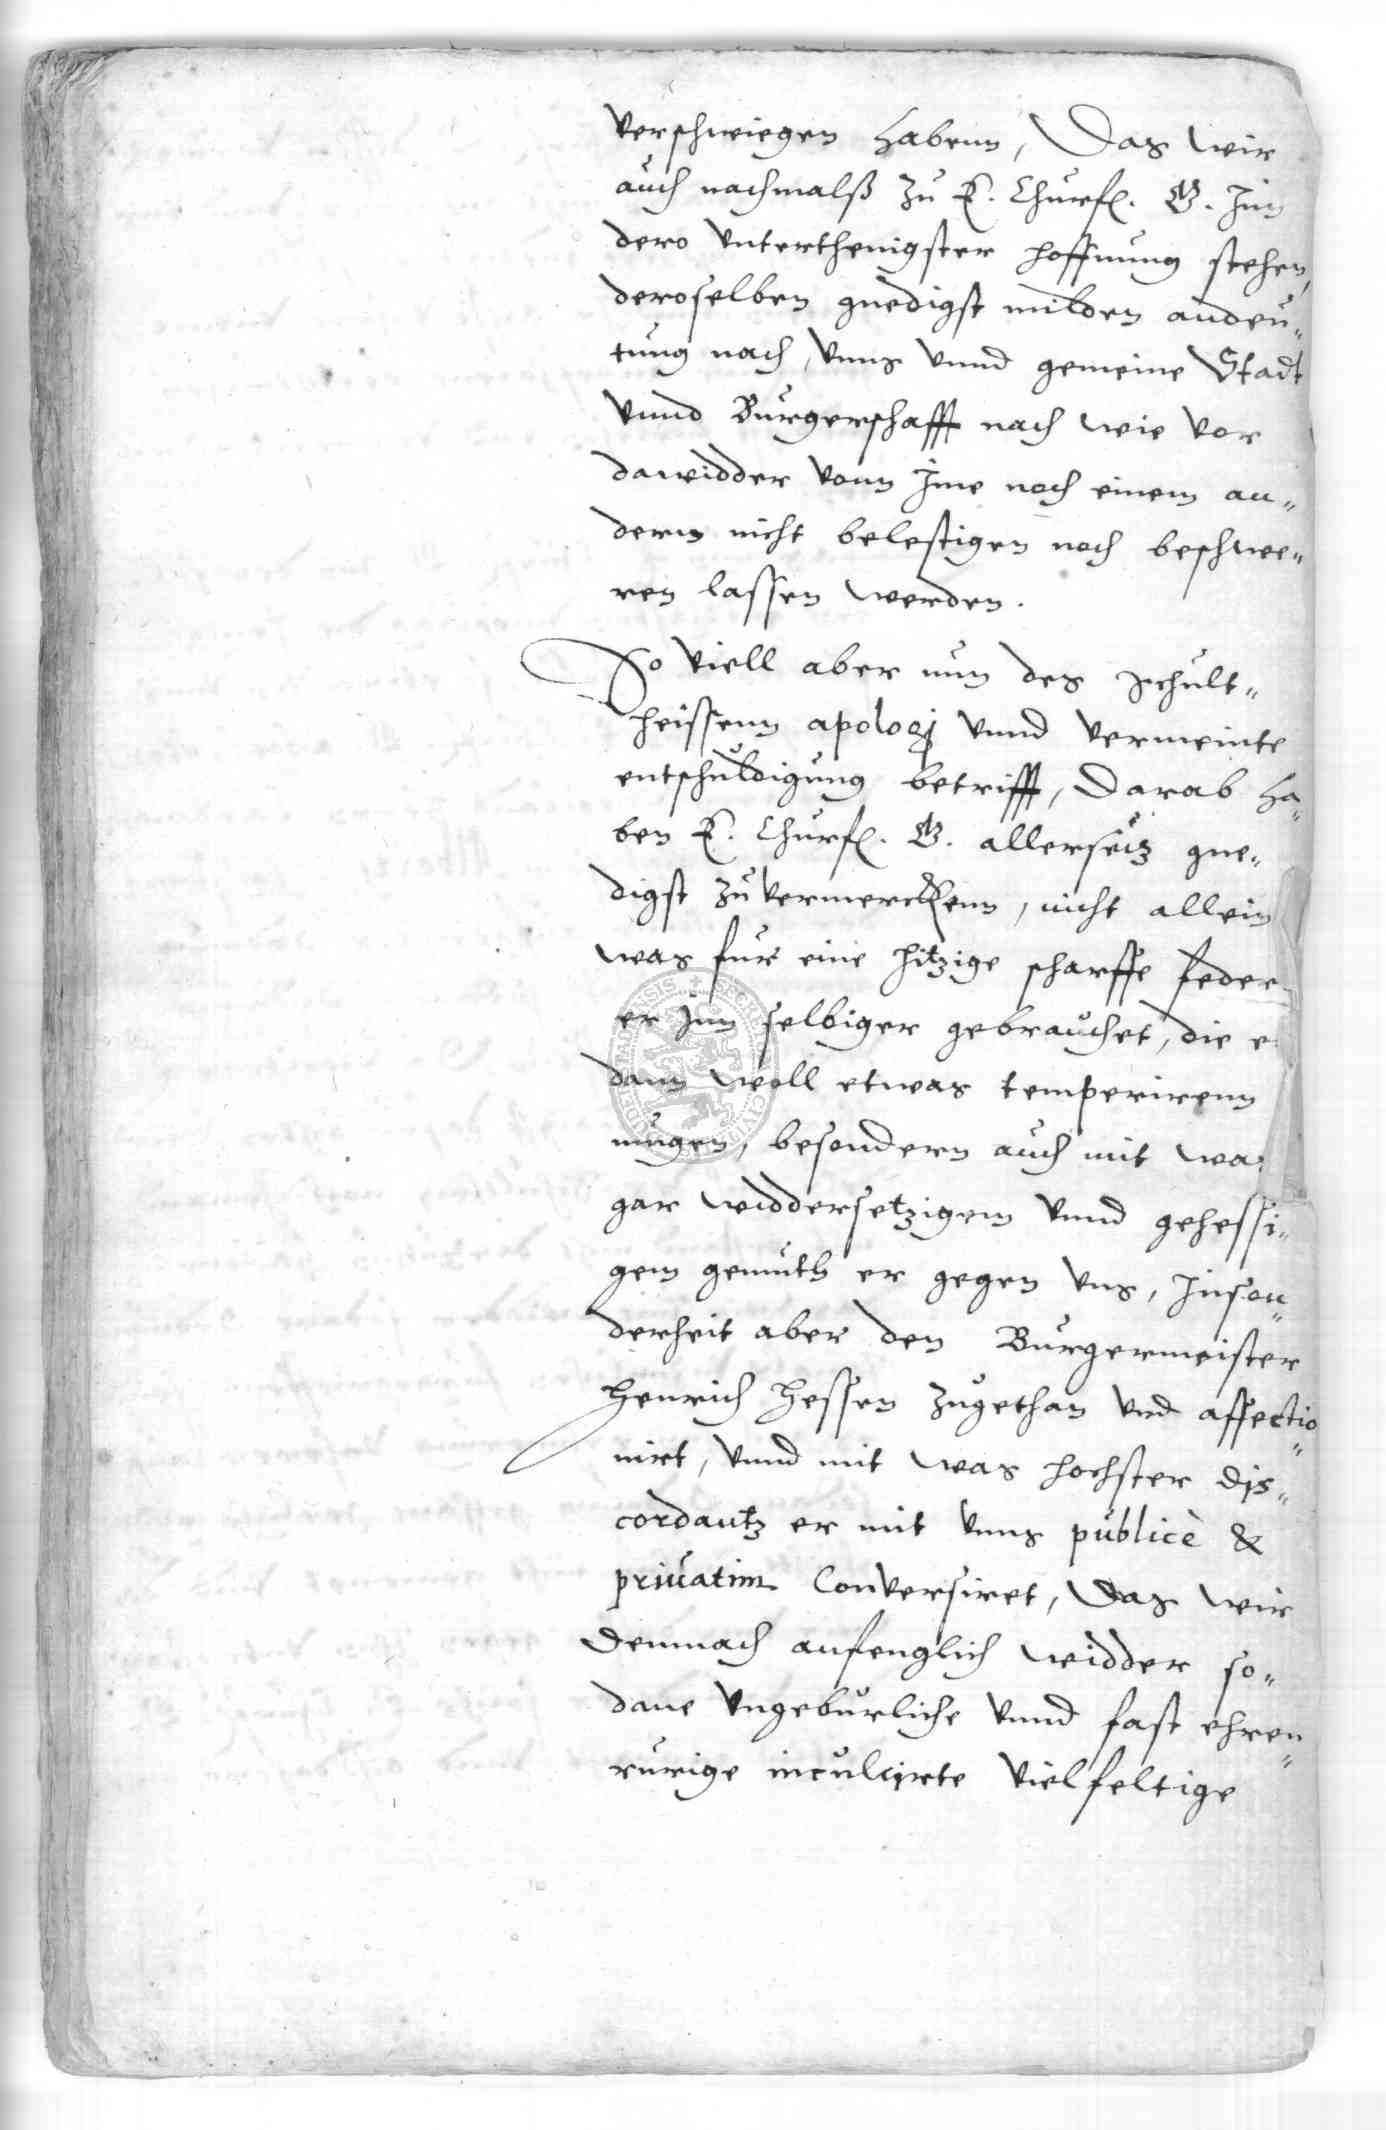 verschwiegen habenn, Das wir
auch nachmalß zu E. Churf. G. Inn
dero vnterthenigster hoffnung stehen,
deroselben gnedigst milden andeu„
tung nach, vnns vnnd gemeine Stadt
vnnd Burgerschafft nach wie vor
dawidder vonn Ime noch einem an„
dern nicht belestigen noch beschwe„
ren lassen werden.
So viell aber nun des Schult„
heissenn apologi vnnd vermeinte
entschuldigung betrifft, Darab ha„
ben E. Churf. G. allerseitz gne„
digst zu vermerckenn, nicht allein
was fur eine hitzige scharffe feder
er Inn selbiger gebrauchet, die e
dann woll etwas temperirenn
mugen, besondern auch mit was
gar widdersetzigem vnnd gehessi„
gem gemuth er gegen vns, Inson„
derheit aber den Burgermeister
Henrich Hessen zugethan vnd affectio„
nirt, vnnd mit was hochster dis„
cordantz er mit vnns publicè &
priuatim Conversiret, Das wir
Demnach anfenglich widder so„
dane vngeburliche vnnd fast ehren„
rurige inculcirte vielfeltige